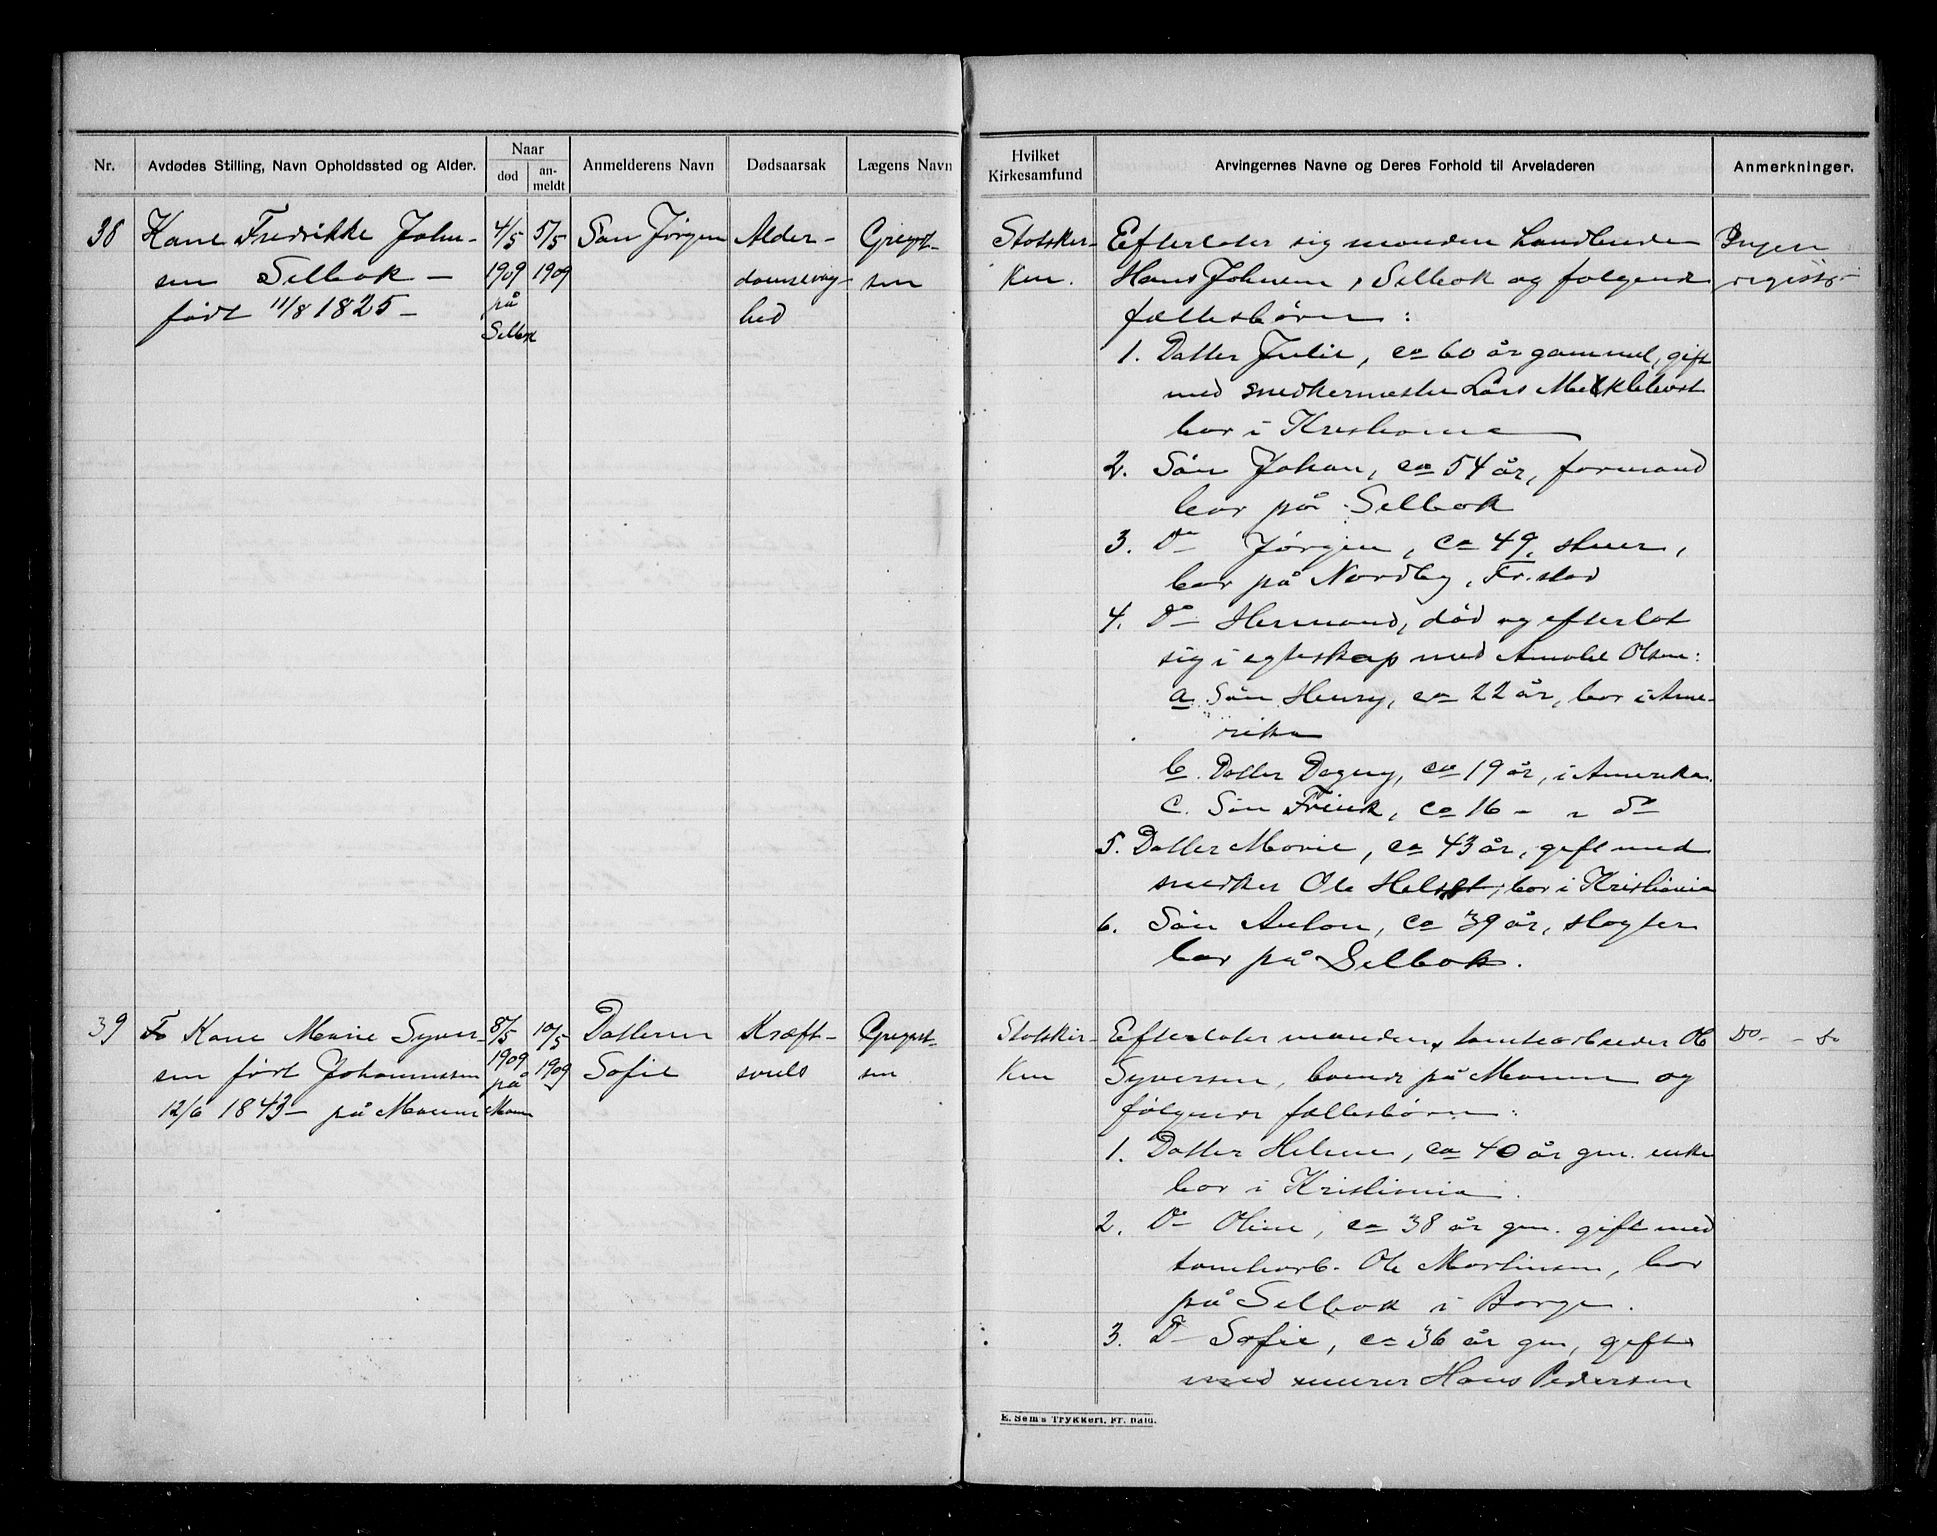 Nr.
Avdødes Stilling, Navn Opholdssted og Alder.
Naar
død
an-
meldt
Anmelderens Navn
Dødsaarsak
Lægens Navn
Hvilket
Kirkesamfund
Arvingernes Navne og Deres Forhold til Arveladeren
Anmerkninger.
38
Kone Fredrikke John-
sen Selbak –
født 11/8 1825 –
4/5
1909
på
Selbak
5/5
1909
Søn Jørgen
Alder-
domssvag-
hed
Gregert-
sen
Statskir-
ken.
Efterlater sig manden Landbruker
Hans Johnsen, Selbak og følgende
fællesbørn:
1. Datter Julie, ca 60 år gammel, gift
med snedkermester Lars Meklebost
bor i Kristiania
2. Søn Johan, ca 54 år, formand
bor på Selbak
3. Do Jørgen, ca 49, stuer,
bor på Nordby, Fr.stad
4. Do Hermand, død og efterlot
sig i egteskap med Amalie Olsen:
a. Søn Henry, ca 22 år, bor i Ame-
rika
b. Datter Dagny, ca 19 år, i Amerika.
c. Søn Frink, ca 16 – " do
5. Datter Marie, ca 43 år, gift med
snedker Ole Helset, bor i Kristiania
6. Søn Anton, ca 39 år, slagter
bor på Selbak.
Ingen
registr.
39
Kone Marie Syver-
sen født Johannessen
12/6 1843 – på Moum
8/5
1909
på
Moum
10/5
1909
Datteren
Sofie
Kræft-
svuls
Gregert-
sen
Statskir-
ken
Efterlater manden, tomtearbeider Ole
Syversen, boende på Moum og
følgende fællesbørn:
1. Datter Helene, ca 40 år gm. enke
bor i Kristiania.
2. Do Oline, ca 38 år gm. gift med
tomtearb. Ole Martinsen, bor
på Selbak i Borge.
3. Do Sofie, ca 36 år gm, gift
med murer Hans Pedersen
Do – do
E. Sem's Trykkeri, Fr. hald.